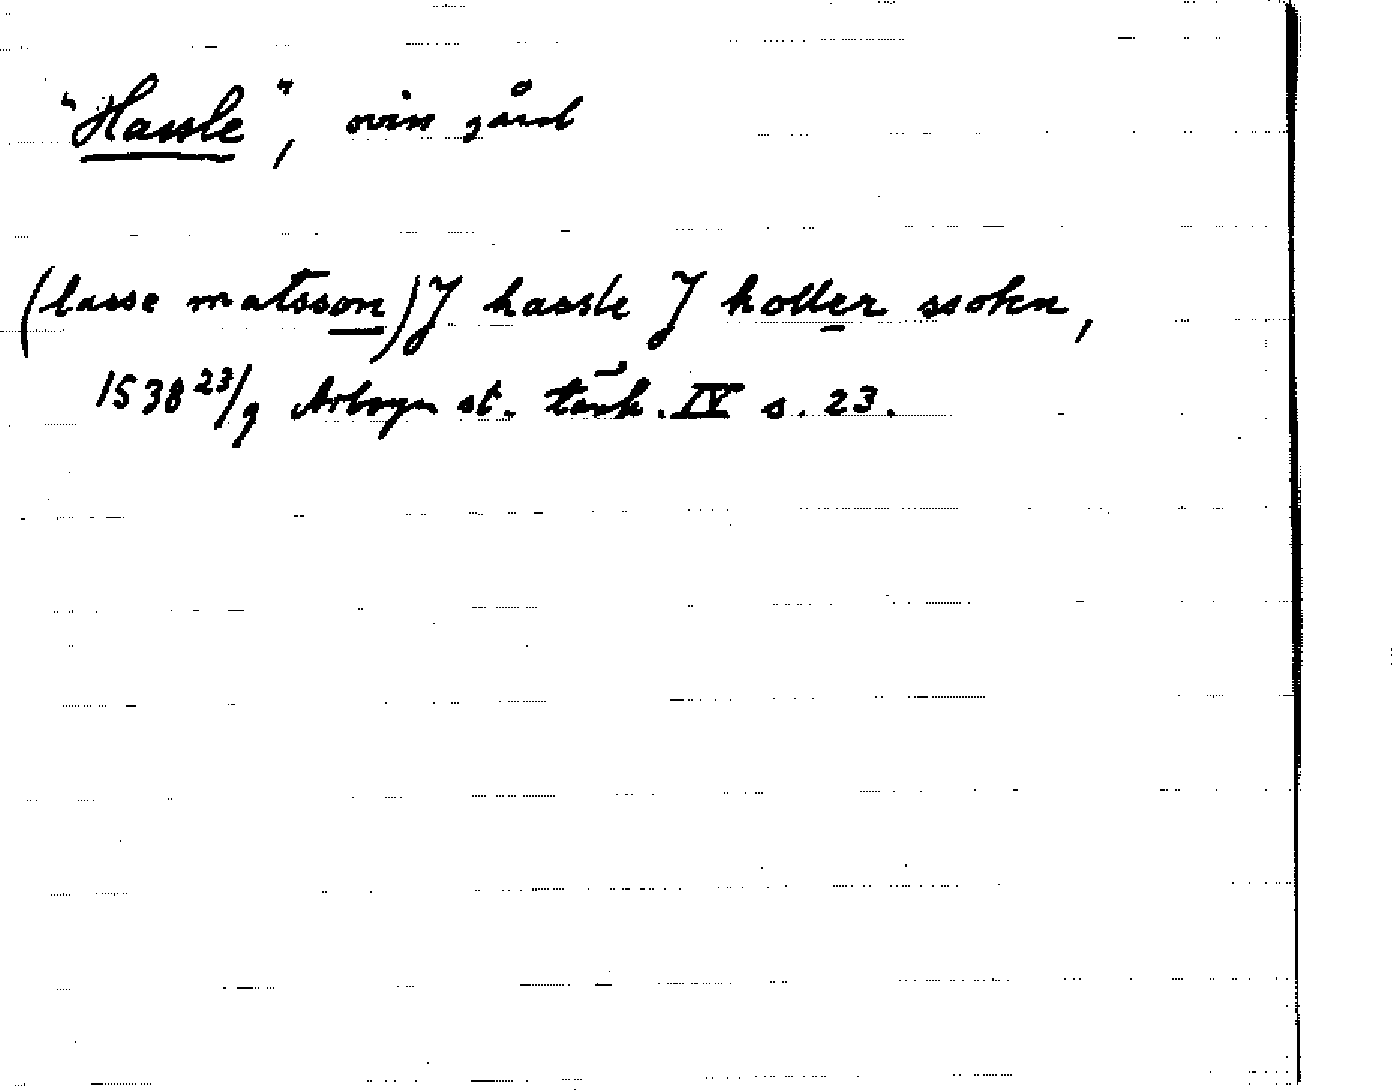 "Hassle", svin gård
(lasse matsson) J hassle J holler ssokn,
1538 23/9 Arboga st. tänk. IV s. 23.